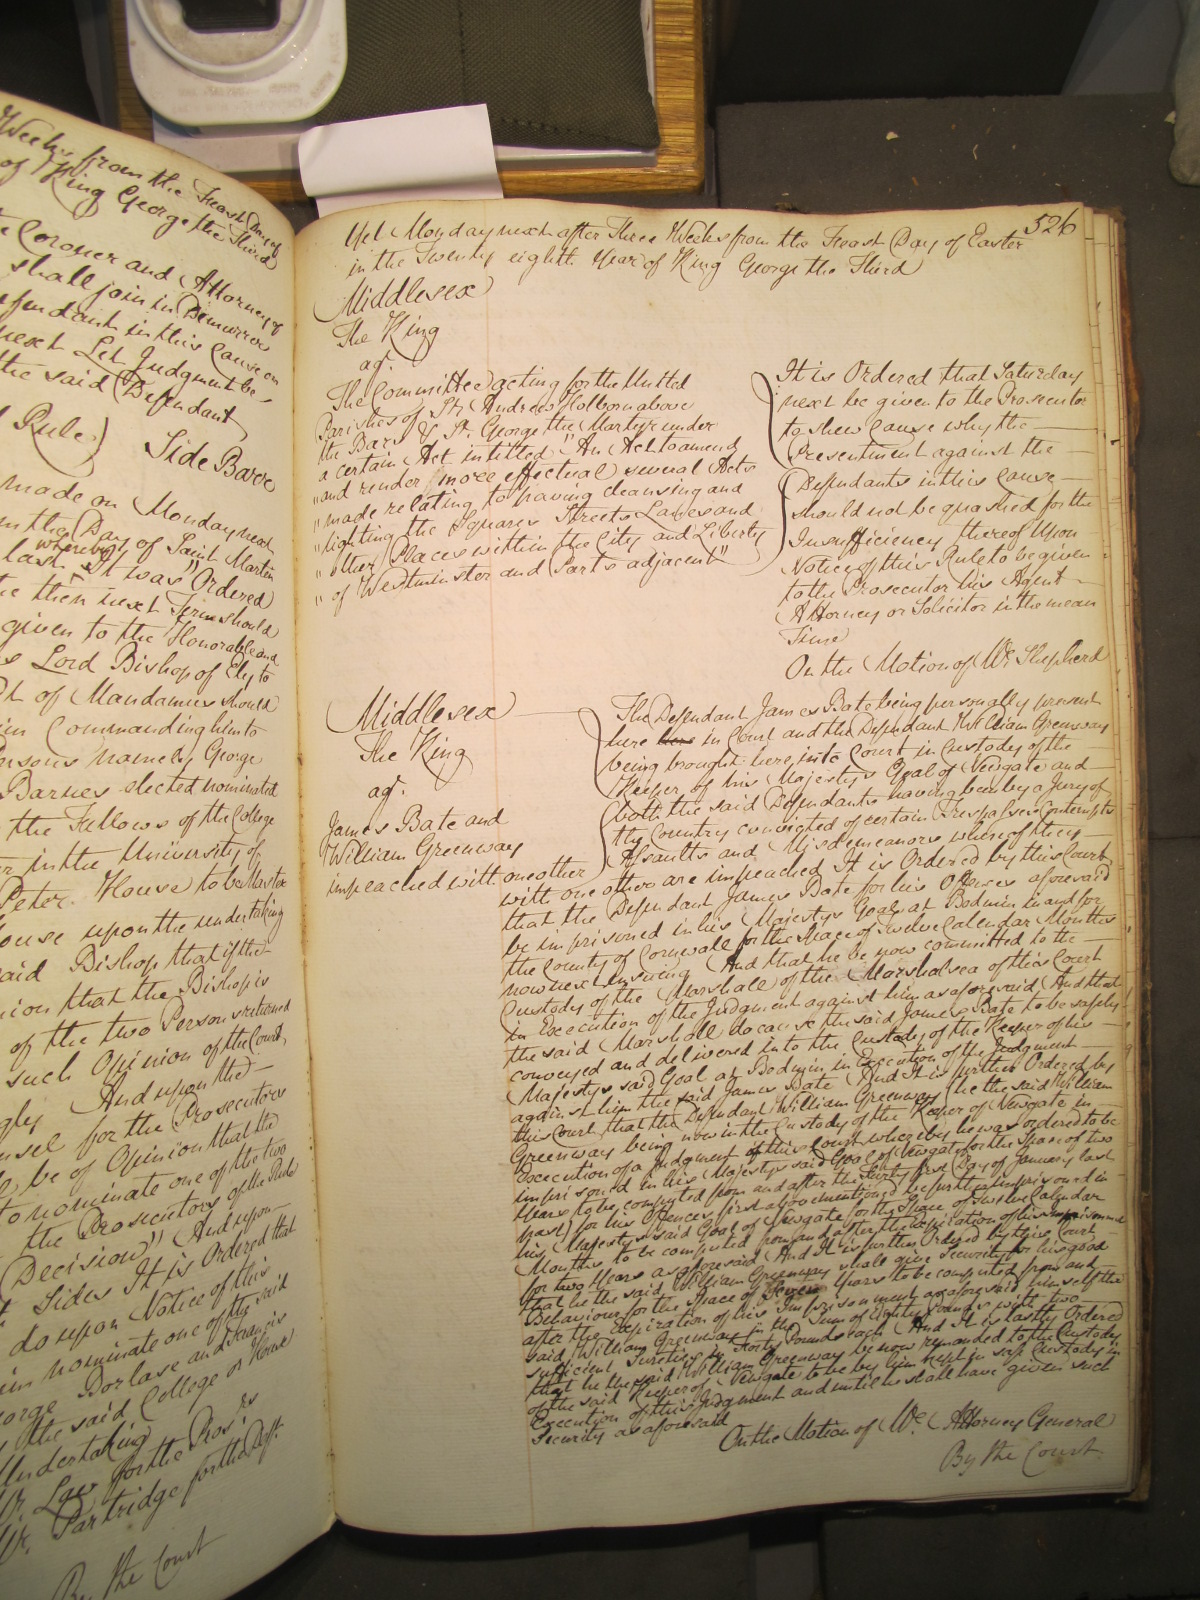 Weeks from the Feast Day of
of King George the Third
Coroner and Attorney of
shall join in Demurrer
Defendant in this Cause on
next Let Judgment be
the said Defendant
Rule) Side Barre
made on Monday next
the Day of Saint Martin
last whereby It was "Ordered
the then next Term should
given to the Honorable and
Lord Bishop of Ely to
of Mandamus should
him Commanding him to
Persons namely George
Barnes elected nominated
the Fellows of the College
in the University of
Peter House to be Master
House upon the undertaking
said Bishop that if the
nion that the Bishop is
of the two Persons returned
such Opinion of the Court
And upon the
nsel for the Prosecutors
be of Opinion that the
to nominate one of the two
the Prosecutors of the Rule
Decision" And upon
Sides It is Ordered that
do upon Notice of this
nominate one of the said
George Borlase and Francis
the said College or House
Undertaking
Mr. Law for the Pros'rs
Mr. Partridge for the Deft.
By the Court
526
Yet Monday next after Three Weeks from the Feast Day of Easter
in the Twenty eighth Year of King George the Third
Middlesex
The King
agt.
The Committee acting for the United
Parishes of St. Andrew Holborn above
the Bars & St. George the Martyr under
a certain Act intitled "An Act to amend
"and render more effectual several Acts
"made relating to paving cleansing and
"lighting the Squares Streets Lanes and
"other Places within the City and Liberty
"of Westminster and Parts adjacent"
It is Ordered that Saturday
next be given to the Prosecutor
to shew Cause why the
Presentment against the
Defendants in this Cause
should not be quashed for the
Insufficiency thereof Upon
Notice of this Rule to be given
to the Prosecutor his Agent
Attorney or Solicitor in the mean
Time
On the Motion of Mr. Shepherd
Middlesex
The King
agt.
James Bate and
William Greenway
impeached with one other
The Defendant James Bate being personally present
here here in Court and the Defendant William Greenway
being brought here into Court in Custody of the
Keeper of his Majesty's Goal of Newgate and
both the said Defendants having been by a Jury of
the Country convicted of certain Trespasses Contempts
Assaults and Misdemeanors whereof they
with one other are impeached It is Ordered by this Court
that the Defendant James Bate for his Offences aforesaid
be imprisoned in his Majesty's Goal at Bodmin in and for
the County of Cornwall for the Space of Twelve Calendar Months
now next ensuing And that he be now committed to the
Custody of the Marshall of the Marshalsea of this Court
in Execution of the Judgment against him as aforesaid And that
the said Marshall do cause the said James Bate to be safely
conveyed and delivered into the Custody of the Keeper of his
Majesty's said Goal at Bodmin in Execution of the Judgment
against him the said James Bate And It is further Ordered by
this Court that the Defendant William Greenway he the said William
Greenway being now in the Custody of the Keeper of Newgate in
Execution of a Judgment of this Court whereby he was ordered to be
imprisoned in his Majesty's said Goal of Newgate for the Space of two
Years to be computed from and after the Thirty first Day of January last
past) for his Offences first abovementioned be further imprisoned in
his Majesty's said Goal of Newgate for the Space of Twelve Calendar
Months to be computed from and after the Expiration of his Imprisonment
for two Years as aforesaid And It is further Ordered by this Court
that he the said William Greenway shall give Security for his good
Behaviour for the Space of Seven Years to be computed from and
after the Expiration of his Imprisonment as aforesaid himself the
said William Greenway in the Sum of Eighty Pounds with two
sufficient Sureties in Forty Pounds each And It is lastly Ordered
that he the said William Greenway be now remanded to the Custody
of the said Keeper of Newgate to be by him kept in safe Custody in
Execution of this Judgment and until he shall have given such
Security as aforesaid
On the Motion of Mr. Attorney General
By the Court